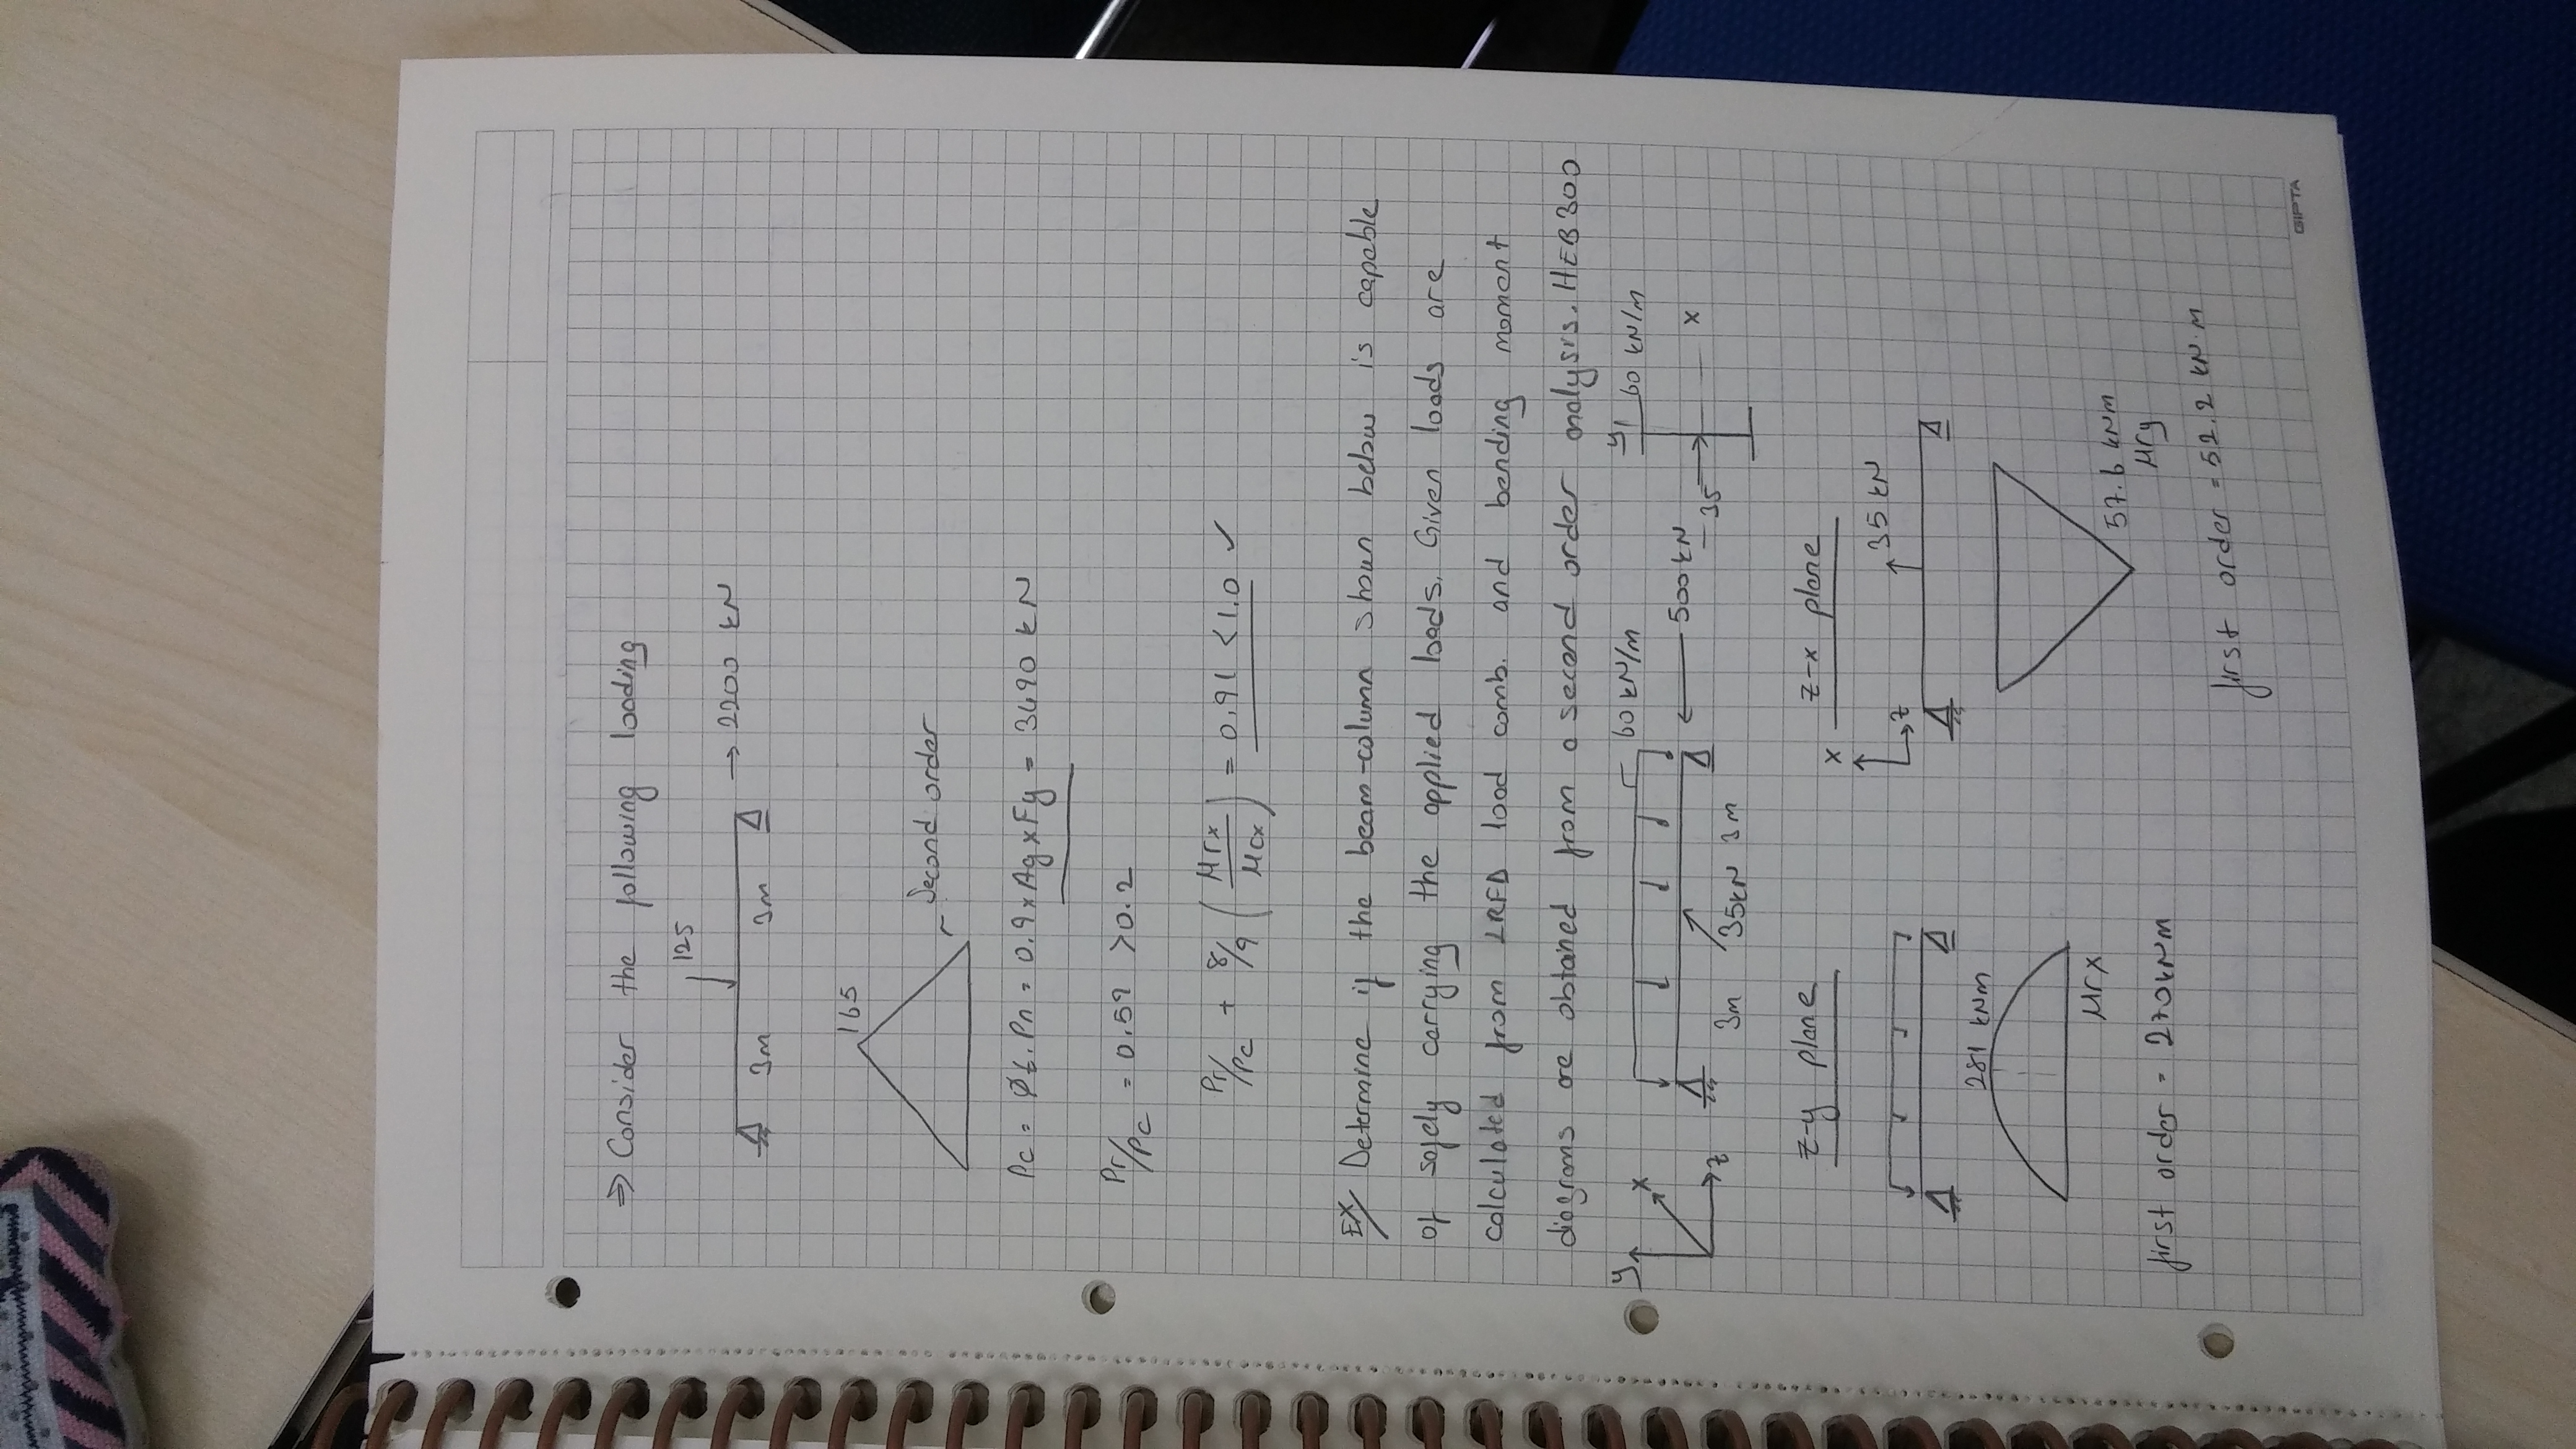 ⇒ Consider the following loading
125
→ 2200 kN
3m 3m
165
Second order
Pc = Øt.Pn = 0.9xAgxFy = 3490 kN
Pr/Pc = 0.59 >0.2
Pr/Pc + 8/9 (Mrx/Mcx) = 0.91 <1.0 ✓
EX/ Determine if the beam-column shown below is capable
of safely carrying the applied loads. Given loads are
calculated from LRFD load comb. and bending moment
diagrams are obtained from a second order analysis. HEB300
y x z
60 kN/m
500kN
3m 35kN 3m
y 60 kN/m
35 x
z-y plane z-x plane
x z
35 kN
281 kNm
Mrx
57.6 kNm
Mry
first order = 270kNm
first order = 52.2 kN.m
GIPTA